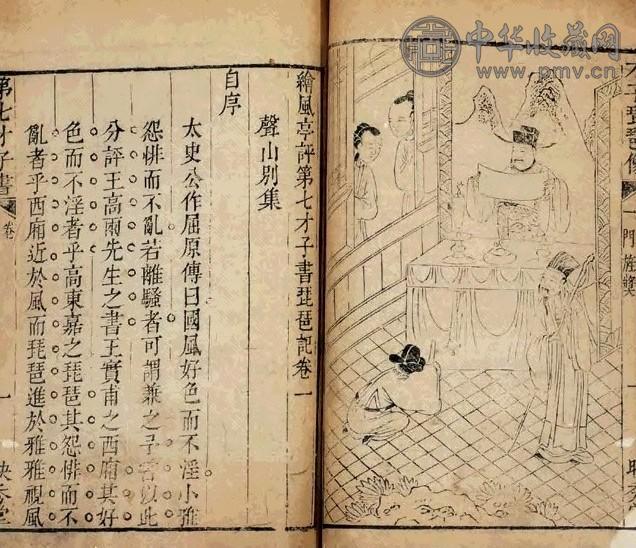 中华收藏网
www.pmv.cn
一門旌獎
繪風亭評第七才子書琵琶記卷一
聲山別集
自序
太史公作屈原傳曰國風好色而不淫小雅
怨悱而不亂若離騷者可謂兼之予以此
分評王高兩先生之書王實甫之西廂其好
色而不淫者乎高東嘉之琵琶其怨悱而不
亂者乎西廂近於風而琵琶進於雅雅視風
第七才子書 卷 一